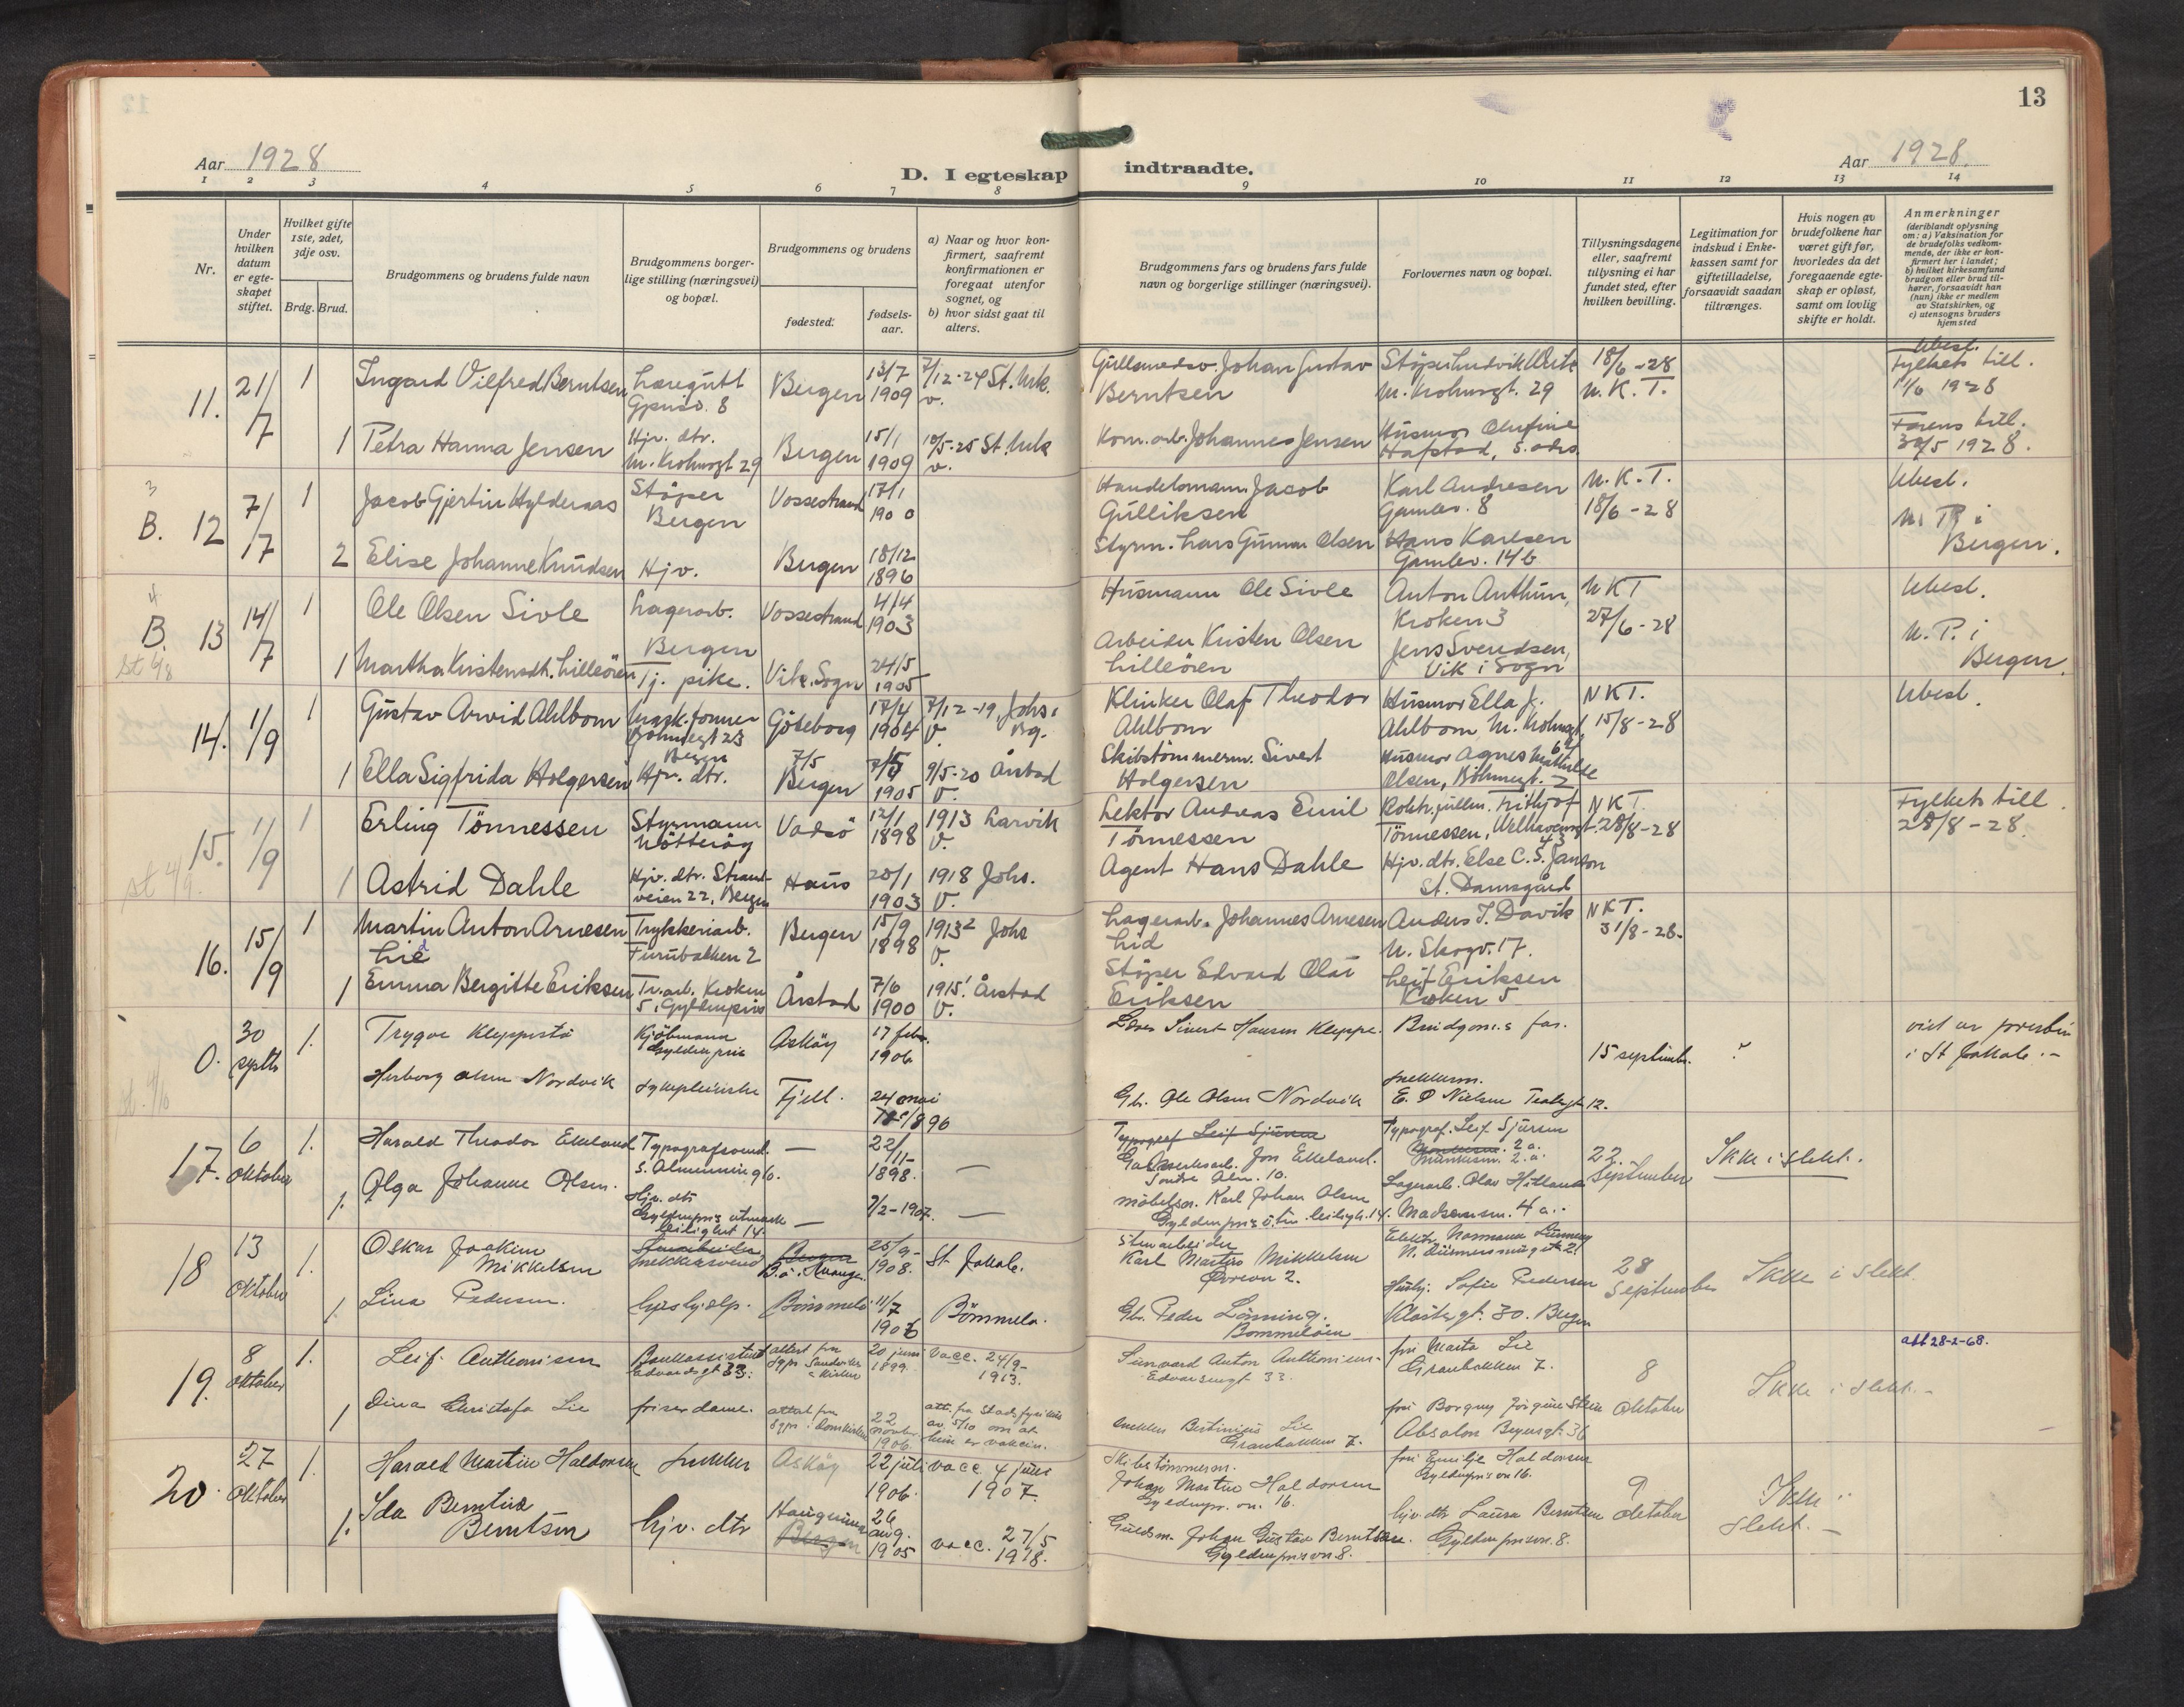 13
Aar 1928
D. I egteskap indtraadte.
Aar 1928.
1 2 3 4 5 6 7 8 9 10 11 12 13 14
Nr.
Under hvilken datum er egteskapet stiftet.
Hvilket gifte 1ste, 2det, 3dje osv.
Brdg. Brud.
Brudgommens og brudens fulde navn
Brudgommens borgerlige stilling (næringsvei) og bopæl.
Brudgommens og brudens
fødested.
fødselsaar.
a) Naar og hvor konfirmert, saafremt konfirmationen er foregaat utenfor sognet, og
b) hvor sidst gaat til alters.
Brudgommens fars og brudens fars fulde navn og borgerlige stillinger (næringsvei).
Forlovernes navn og bopæl.
Tillysningsdagene eller, saafremt tillysning ei har fundet sted, efter hvilken bevilling.
Legitimation for indskud i Enkekassen samt for giftetilladelse, forsaavidt saadan tiltrænges.
Hvis nogen av brudefolkene har været gift før, hvorledes da det foregaaende egteskap er opløst, samt om lovlig skifte er holdt.
Anmerkninger (deriblandt oplysning om: a) Vaksination for de brudefolks vedkommende, der ikke er konfirmert her i landet; b) hvilket kirkesamfund brudgom eller brud tilhører, forsaavidt han (hun) ikke er medlem av Statskirken, og c) utensogns bruders hjemsted
11. 21/7 1 Ingard Vilfred Berntsen Læregutt Gpriso. 8 Bergen 13/7 1909 7/12-24 St. Mrk. v.
Gullsmedsv. Johan Gustav Berntsen
Støper Ludvik
M. Krohnsgt. 29
18/6-28 N.K.T.
Ubesl. Fylkets till. 11/6 1928
1 Petra Hanna Jensen Hjv. dtr. M. Krohnsgt 29 Bergen 15/1 1909 10/5-25 St. Mrk v.
Kom. arb. Johannes Jensen
Husmor Olufine Hafstad, s. adrs.
Farens till. 30/5 1928.
3
B. 12 7/7 1 Jacob Gjertin Hyldenaas Støper Bergen Vossestrand 17/1 1900
Handelsmann Jacob Gulliksen
Karl Andresen Gamlev. 8
N.K.T. 18/6-28
Ubesl.
2 Elise Johanne Knudsen Hjv. Bergen 18/12 1896
Styrm. Lars Gunnar Olsen
Hans Karlsen Gamlev. 14b
N. P. i Bergen.
4
B. 13 14/7 1 Ole Olsen Sivle Lagerarb. Bergen Vossestrand 4/4 1903
Husmann Ole Sivle
Anton Anthun, Kroken 3
NKT 27/6-28
Ubesl.
1 Martha Kristensdt. Lilleøren Tj. pike. Vik. Sogn 24/5 1905
Arbeider Kristen Olsen Lilleøren
Jens Svendsen, Vik i Sogn
N. P. i Bergen.
14. 1/9 1 Gustav Arvid Ahlbom Mask. former Bøhmsgt 23 Bergen Gøteborg 17/4 1904 7/12-19, Johs. Bg. v.
Klinker Olaf Theodor Ahlbom
Husmor Ella J. Ahlbom, M. Krohnsgt. 64
NKT. 15/8-28
Ubesl.
1 Ella Sigfrida Holgersen Hjv. dtr. Bergen 7/5 1905 9/5-20 Årstad v.
Skibstømmerm. Sivert Holgersen
Husmor Agnes Mathilde Olsen, Bøhmsgt. 2
15. 1/9 1 Erling Tønnessen Styrmann Nøtterøy Vadsø 12/1 1898 1913 Larvik v.
Lektor Andreas Emil Tønnessen
Kontr. fullm. Frithjof Tønnessen, Welhavensgt. 43
NKT. 28/8-28
Fylkets till. 28/8-28.
st 4/9.
1 Astrid Dahle Hjv. dtr. Strandveien 22, Bergen Haus 20/1 1903 1918 Johs. v.
Agent Hans Dahle
Hjv. dtr. Else C. S. Janson St. Damsgård
16. 15/9 1 Martin Anton Arnesen Lid Trykkeriarb. Furubakken 2 Bergen 15/9 1898 1913² Johs v.
Lagerarb. Johannes Arnesen Lid
Anders T. Davik N. Skogv. 17.
NKT. 31/8-28.
1 Emma Bergitte Eriksen Tr. arb. Kroken 5, Gyldenpris Årstad 7/6 1900 1915! Årstad v.
Støper Edvard Olai Eriksen
Leif Eriksen Kroken 5
0. 30 septb 1. Trygve Kleppestø Kjøbmann Gyldenpris Askøy 17 febr. 1906
Sivert Hansen Kleppe.
Brudgom.s far.
15 septemb. ?
viet av presten i St Jakob.-
Herborg Olsen Nordvik sykepleierske Fjell. 24 mai 1896
Gbr. Ole Olsen Nordvik
snekkerm. E. O Nielsen 12.
17. 6 Oktober 1. Harald Theodor Ekeland Typografsvend. S. Almenning 6. — 22/11- 1898. —
Typograf Leif Sjursen
Gassverksarb. Jon Ekeland. Søndre Alm. 10.
Typograf. Leif Sjursen 2 a.
22 September
Ikke i slekt.
1. Olga Johanne Olsen. Hjv. dtr Gyldenpris utmark leilighet 14. — 7/2-1907. —
møbelsn. Karl Johan Olsen Gyldenpris utm. leiligh. 14.
Lagerarb. Olav Hitland Madamsm. 4 a.
18 13 Oktober 1. Oskar Joakim Mikkelsen snekkersvend Bergen 25/9- 1908. St Jakob.
Stenarbeider Karl Martin Mikkelsen
Elektr. Normann
28 September
Ikke i slekt.
1 Lina Pedersen. hushjelp. Bømmelo 11/7 1906 Bømmelo.
Gbr. Peder Lønning. Bommeløen
Hushj. Sofie Pedersen Klostergt. 30. Bergen
19. 8 Oktober 1. Leif Anthonisen Bankassistent Edvardsgt 33. attest fra Sgpr Sandviks kirken 20 juni 1899. vacc. 24/9- 1913.
Anton Anthonisen- Edvardsengt 33.
fru Marta Lie Granbakken 7.
8 Oktober
Ikke i slekt.-
att 28-2-68.
1 Dina Christofa Lie friserdame. attest fra Sgpr i Domkirken 22 novbr. 1906. att. fra Stadsfysikus av 5/10 om at hun er vaksin.
snekker Bertinius Lie Granbakken 7.
frú Borgny Jørgine Stein Absalon Beyersgt. 36
20. 27 Oktober 1. Harald Martin Haldorsen snekker Askøy 22 juli 1906. vacc. 4 juli 1907.
Skibstømmerm. Johan Martin Haldorsen Gyldenpr. vn. 16.
fru Emilie Haldorsen Gyldenpris vn 16.
9 Oktober
Ikke i slekt.-
1. Ida Berntine Berntsen hjv. dtr Haugesund Bergen 26 aug. 1905 vacc. 27/5 1918.
Guldsm. Johan Gustav Berntsen. Gyldenpris vn 8.
hjv. dtr Laura Berntsen Gyldenpris vn. 8.